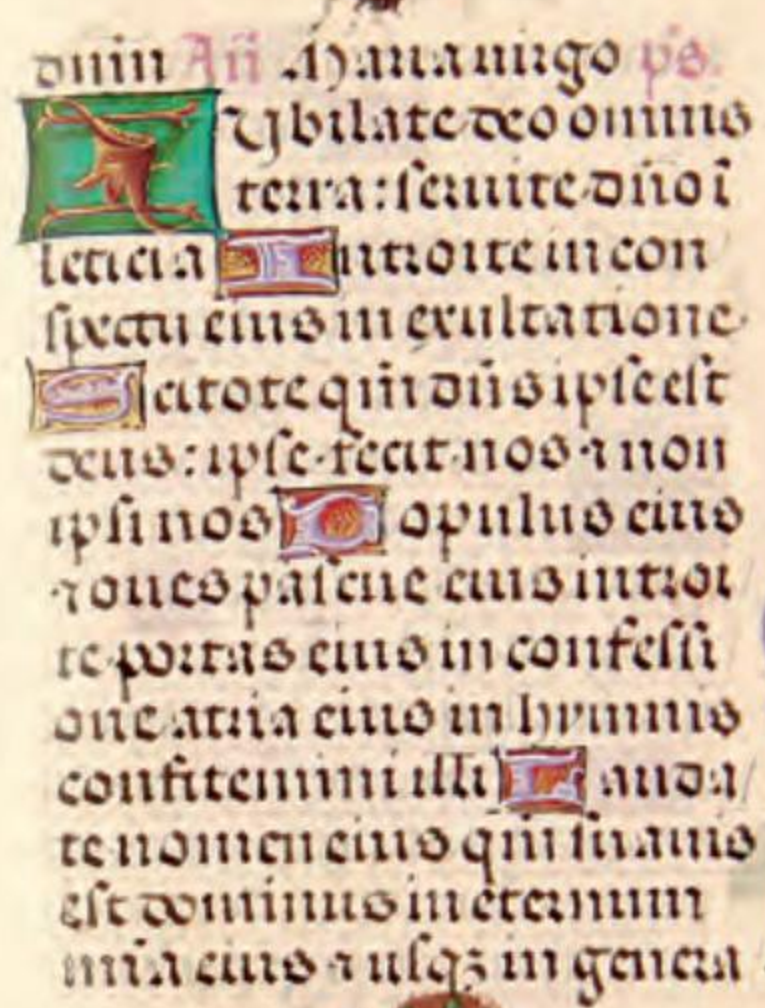 dnm Añ Maria uirgo ps.
Iubilate deo omnis
terra: seruite dño ĩ
leticia Introite in con
spectu eius in exultatione
Scitote qm̃ dñs ipse est
deus: ipse fecit nos ⁊ non
ipsi nos Populus eius
⁊ oues pascue eius introi/
te portas eius in confessi
one atria eius in hymnis
confitemini illi Lauda/
te nomen eius qm̃ suauis
est dominus in eternum
mĩa eius ⁊ usqꝫ in genera